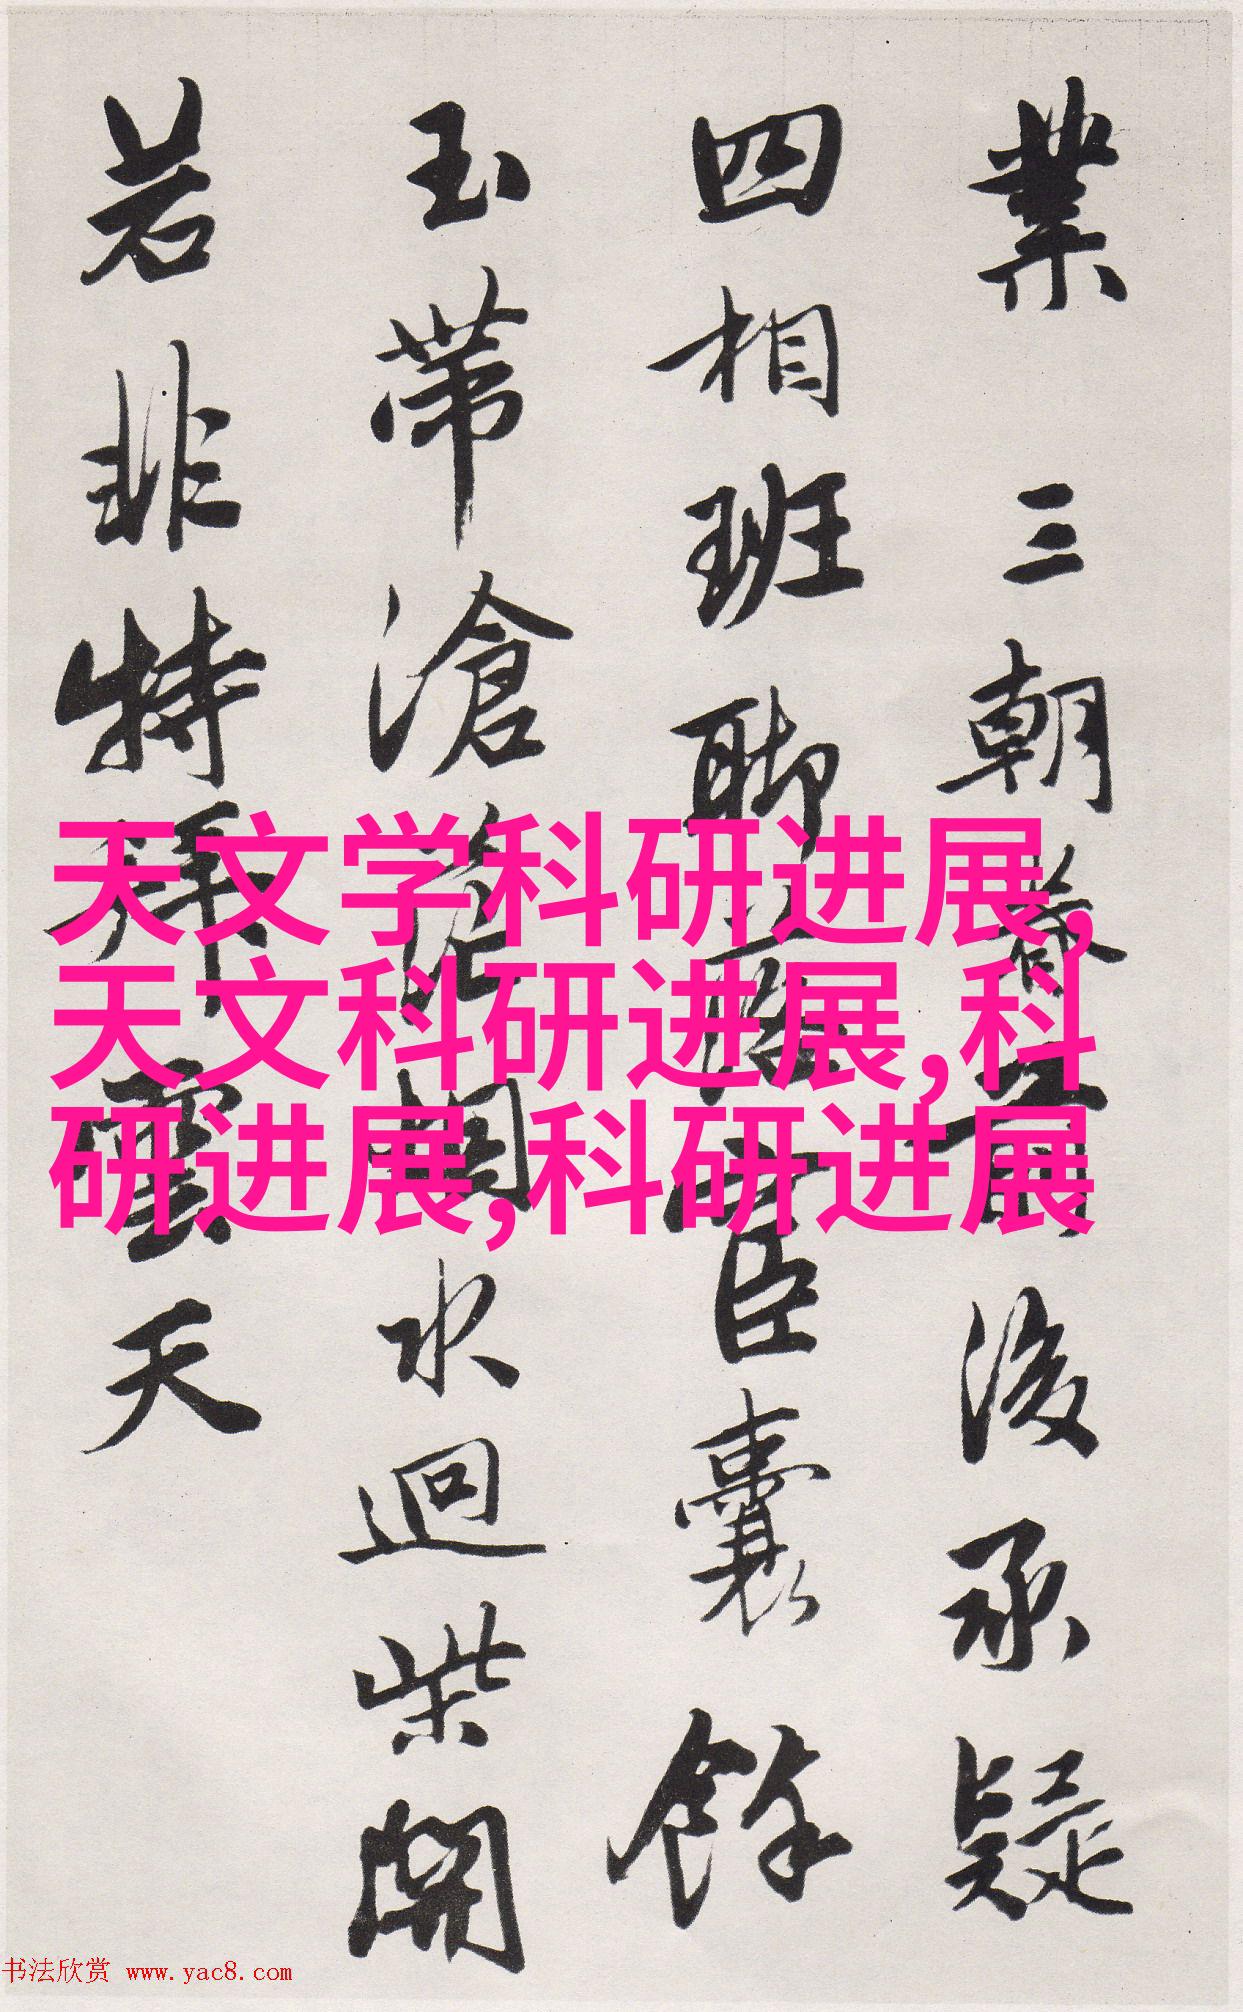 業 三朝後承疑
四相班聊臣囊餘
玉帶滄水迴柴開
若非特天
天文学科研进展,
天文科研进展,科
研进展,科研进展
书法欣赏 www.yac8.com